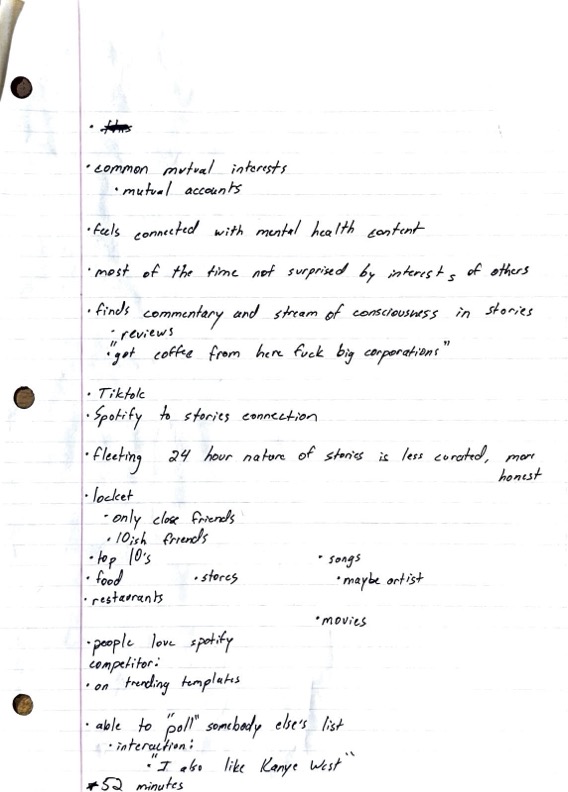 • common mutual interests
• mutual accounts
• feels connected with mental health content
• most of the time not surprised by interests of others
• finds commentary and stream of consciousness in stories
• reviews
• "got coffee from here fuck big corporations"
• Tiktok
• Spotify to stories connection
• fleeting 24 hour nature of stories is less curated, more
honest
• locket
• only close friends
• 10ish friends
• top 10's
• songs
• food • stores
• maybe artist
• restaurants
• movies
• people love spotify
competitor:
• on trending templates
• able to "poll" somebody else's list
• interaction:
• "I also like Kanye West"
*52 minutes